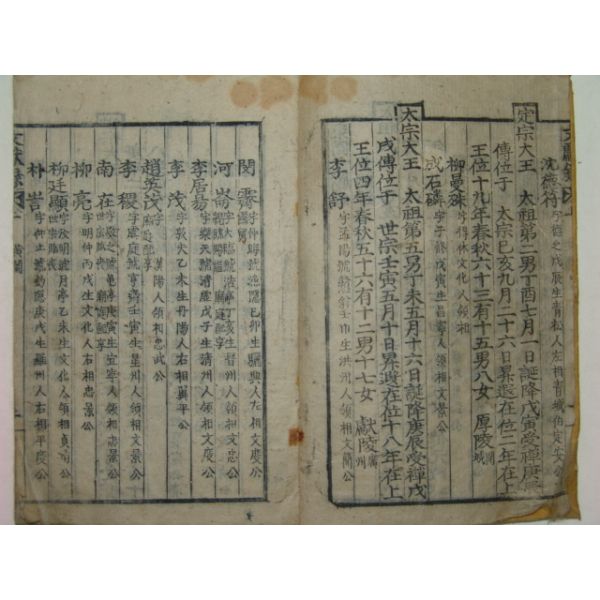 沈德符 字德之戊辰生青松人左相青城伯定安公
定宗大王 太祖第二男丁酉七月一日誕降戊寅受禪庚辰
傳位子 太宗己亥九月二十六日昇遐在位二年在上
王位十九年春秋六十三有十五男八女 厚陵
柳曼殊 文化人領相
成石璘 字子修戊寅生昌寧人領相文景公
太宗大王 太祖第五男丁未五月十六日誕降庚辰受禪戊
戌傳位子 世宗壬寅五月十日昇遐在位十八年在上
王位四年春秋五十六有十二男十七女 獻陵廣州
李舒 字孟陽號 洪州人領相文簡公
閔霽 字仲晦號漁隱己卯生驪興人左相文度公
河崙 字大臨號浩亭丁亥生晉州人領相文忠公
李居易 字樂天 戊子生清州人領相文度公
李茂 字敦夫乙未生丹陽人右相翼平公
趙英茂 漢陽人領相忠武公
李稷 字虞庭號亨齋壬寅生星州人領相文景公
南在 字敬之號龜亭 寅生宜寧人領相忠景公
柳亮 字明仲 生文化人右相忠景公
柳廷顯 字汝明號月亭乙未生文化人領相貞肅公
朴訔 字仰止號釣隱庚戌生羅州人右相平度公
文獻錄